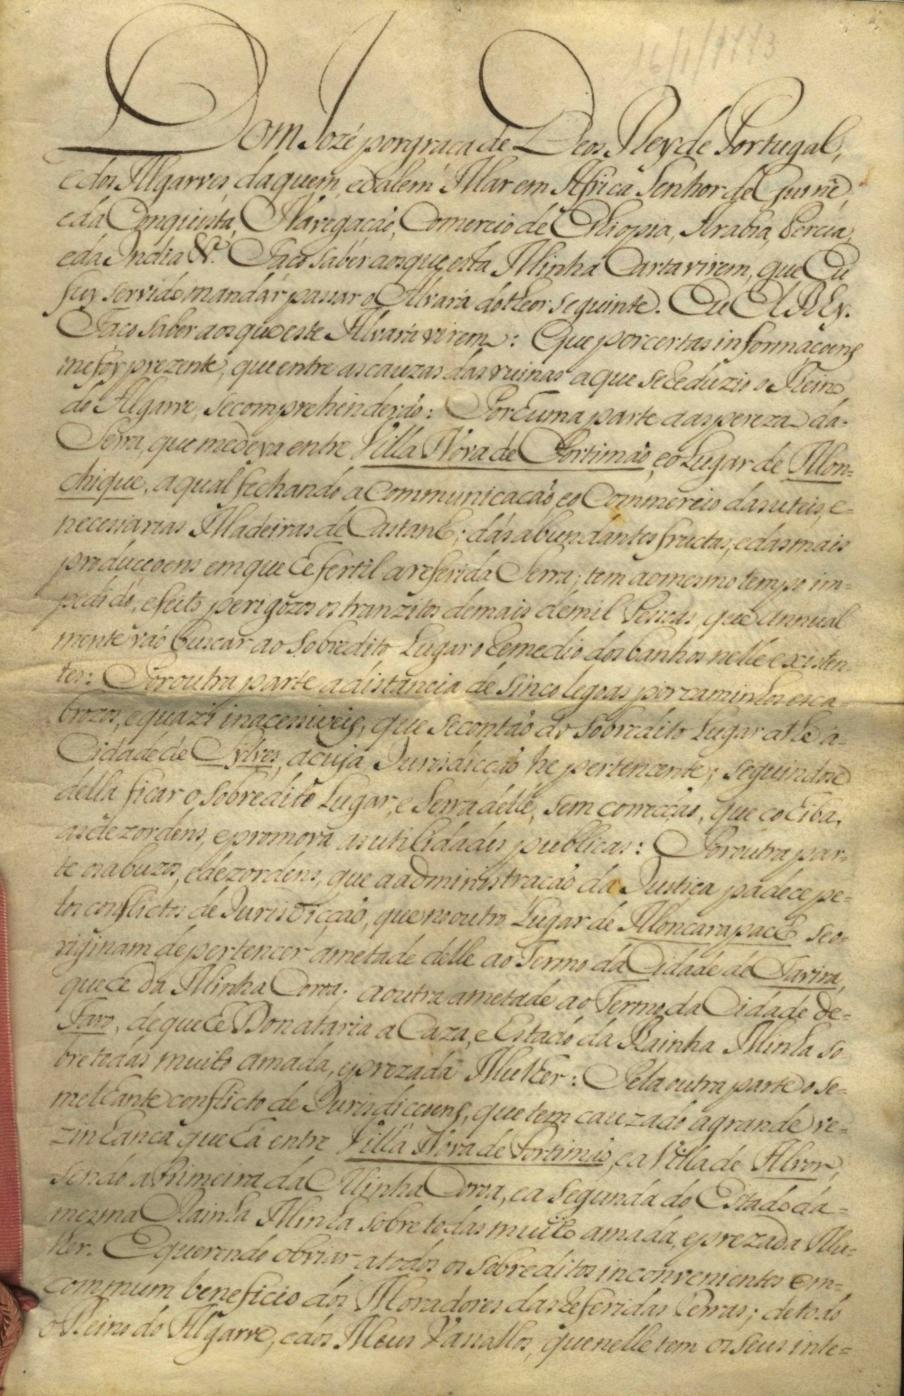 16/1/1773
Dom Jozé por graça de Deos Rey de Portugal,
e dos Algarves daquem, e dalem Mar em Africa Senhor de Guiné,
e da Conquista, Navegação, Comercio de Ethiopia, Arabia, Percia,
e da India &.ª Faço saber aos que esta Minha Carta virem, que Eu
fuy servido mandar passar o Alvará do theor seguinte. Eu El Rey.
Faço saber aos que este Alvará virem: Que por certas informaçoens
me foy prezente, que entre as cauzas das ruinas a que se reduzio o Reino
do Algarve, se comprehenderão: Por huma parte a aspereza da
Serra, que medeya entre Villa Nova de Portimão, e o Lugar de Mon-
chique, a qual fechando a communicação, e o Commercio das uteis, e
necessarias Madeiras de Castanho; das abundantes fructas, e das mais
producçoens em que he fertil a referida Serra; tem ao mesmo tempo im-
pedido, e feito perigozos os tranzitos de mais de mil Pessoas, que annual
mente vão buscar ao sobredito Lugar o remedio dos banhos nelle existen-
tes: Por outra parte a distancia de sinco legoas por caminhos esca-
brozos, e quazi inacessiveis, que se contão do sobredito Lugar athe a
Cidade de Sylves, a cuja Jurisdicção he pertencente; seguindose
della ficar o sobredito Lugar, e Serra delle, sem correição, que cohiba,
as dezordens, e promova as utilidades publicas: Por outra par-
te os abuzos, e dezordens, que a administração da Justiça padece pe-
los conflictos de Jurisdicção, que no outro Lugar de Moncarapacho se o-
riginam de pertencer ametade delle ao Termo da Cidade de Tavira,
que he da Minha Coroa: a outra ametade ao Termo da Cidade de
Faro, de que he Donataria a Caza, e Estado da Rainha Minha so
bre todas muito amada, e prezada Mulher: Pela outra parte o se-
melhante conflicto de Jurisdicçoens, que tem cauzado a grande ve-
zinhança que há entre Villa Nova de Portimão, e a Villa de Alvor,
sendo a Primeira da Minha Coroa, e a segunda do Estado da
mesma Rainha Minha sobre todas muito amada, e prezada Mu-
lher. E querendo obviar a todos os sobreditos inconvenientes em
commum beneficio dos Moradores das referidas Terras; de todo
o Reino do Algarve, e dos Meus Vassallos, que nelle tem os seus inte-